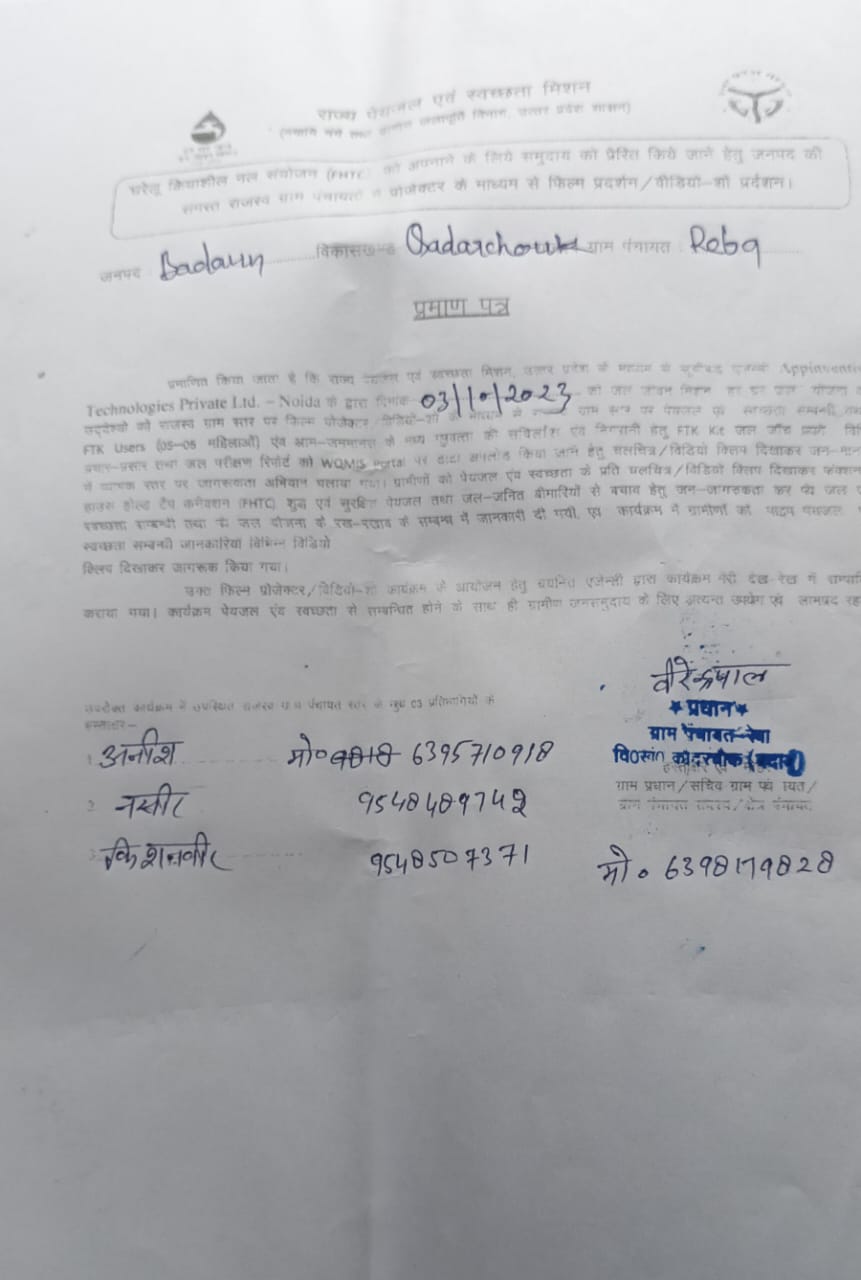 राज्य पेयजल एवं स्वच्छता मिशन
(नमामि गंगे तथा ग्रामीण जलापूर्ति विभाग, उत्तर प्रदेश शासन)
घरेलू क्रियाशील नल संयोजन (FHTC) को अपनाने के लिये समुदाय को प्रेरित किये जाने हेतु जनपद की
समस्त राजस्व ग्राम पंचायतों में प्रोजेक्टर के माध्यम से फिल्म प्रदर्शन/वीडियो-शो प्रर्दशन।
जनपद : Badaun विकासखण्ड Qadarchowk ग्राम पंगायत : Reba
प्रमाण पत्र
प्रमाणित किया जाता है कि राज्य पेयजल एवं स्वच्छता मिशन, उत्तर प्रदेश के माध्यम से Appinventi
Technologies Private Ltd. – Noida के द्वारा दिनांक 03/10/2023 को जल जीवन मिशन हर घर जल योजना
उद्देश्यों को राजस्व ग्राम स्तर पर फिल्म प्रोजेक्टर /विडियो-शो के माध्यम से ग्राम स्तर पर पेयजल एवं स्वच्छता सम्बन्धी
FTK Users (05-05 महिलाओं) एंव आम-जनमानस के मध्य गुणवत्ता की सर्विलांश एंव निगरानी हेतु FTK Kit जल जाँच
प्रचार-प्रसार तथा जल परीक्षण रिपोर्ट को WQMIS Portal पर डाटा अपलोड किया जाने हेतु चलचित्र/विडियो क्लिप दिखाकर जन-मान
में व्यापक स्तर पर जागरूकता अभियान चलाया गया। ग्रामीणों को पेयजल एंव स्वच्छता के प्रति चलचित्र/विडियो क्लिप दिखाकर फंक्शन
हाउस होल्ड टैप कनेक्शन (FHTC) शुद्ध एवं सुरक्षित पेयजल तथा जल-जनित बीमारियों से बचाव हेतु जन-जागरूकता कर पेय जल
स्वच्छता सम्बन्धी तथा जल योजना के रख-रखाव के सम्बन्ध में जानकारी दी गयी, एवं कार्यक्रम में ग्रामीणों को पाइप पेयजल
स्वच्छता सम्बन्धी जानकारियां विभिन्न विडियो
क्लिप दिखाकर जागरूक किया गया।
उक्त फिल्म प्रोजेक्टर/विडियो-शो कार्यक्रम के आयोजन हेतु चयनित एजेन्सी द्वारा कार्यक्रम मेरी देख-रेख में सम्पादि
कराया गया। कार्यक्रम पेयजल एंव स्वच्छता से सम्बन्धित होने के साथ ही ग्रामीण जनसमुदाय के लिए अत्यन्त उपयोग एवं लाभप्रद रह
वीरेन्द्रपाल
प्रधान
ग्राम पंचायत-रेवा
वि0ख0 कादरचौक (बदायूँ)
ग्राम प्रधान/सचिव ग्राम पंचायत/
उपरोक्त कार्यक्रम में उपस्थित राजस्व ग्राम पंचायत स्तर के मुख्य 03 प्रतिभागियों के
हस्ताक्षर–
1 अनीश मो० 6395710918
2 नसीर 9548489742
3 किशनवीर 9548507371
मो० 6398179828